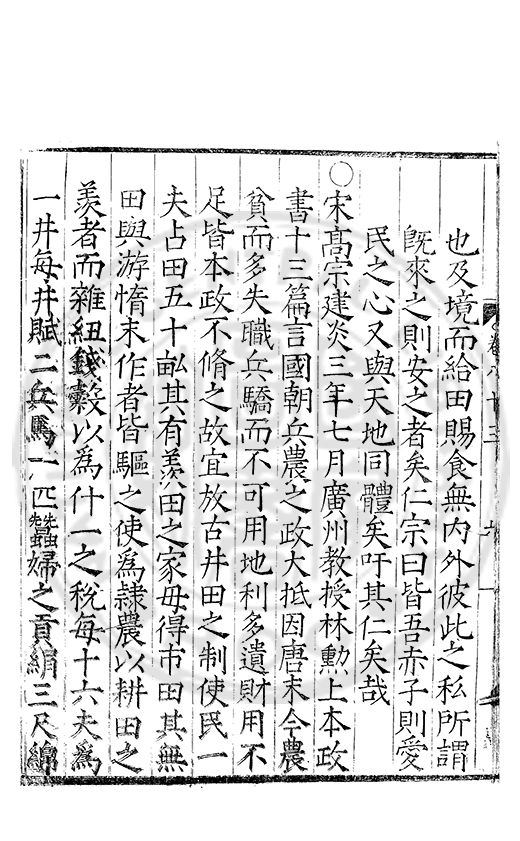 也及境而給田賜食無內外彼此之私所謂
旣來之則安之者矣仁宗曰皆吾赤子則愛
民之心又與天地同體矣吁其仁矣哉
○宋高宗建炎三年七月廣州教授林勲上本政
書十三篇言國朝兵農之政大抵因唐末今農
貧而多失職兵驕而不可用地利多遺財用不
足皆本政不脩之故宜放古井田之制使民一
夫占田五十畝其有羨田之家毋得市田其無
田與游惰末作者皆驅之使爲隸農以耕田之
羨者而雜紐錢穀以爲什一之稅每十六夫爲
一井每井賦二兵馬一匹蠶婦之貢絹三尺綿
卷八十三